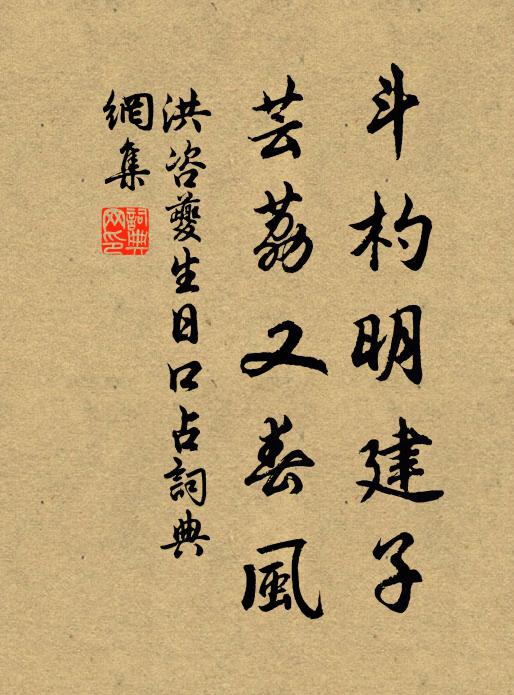 斗杓明建子
芸荔又春風
洪咨夔生日口占詞典
網集
詞典
网印